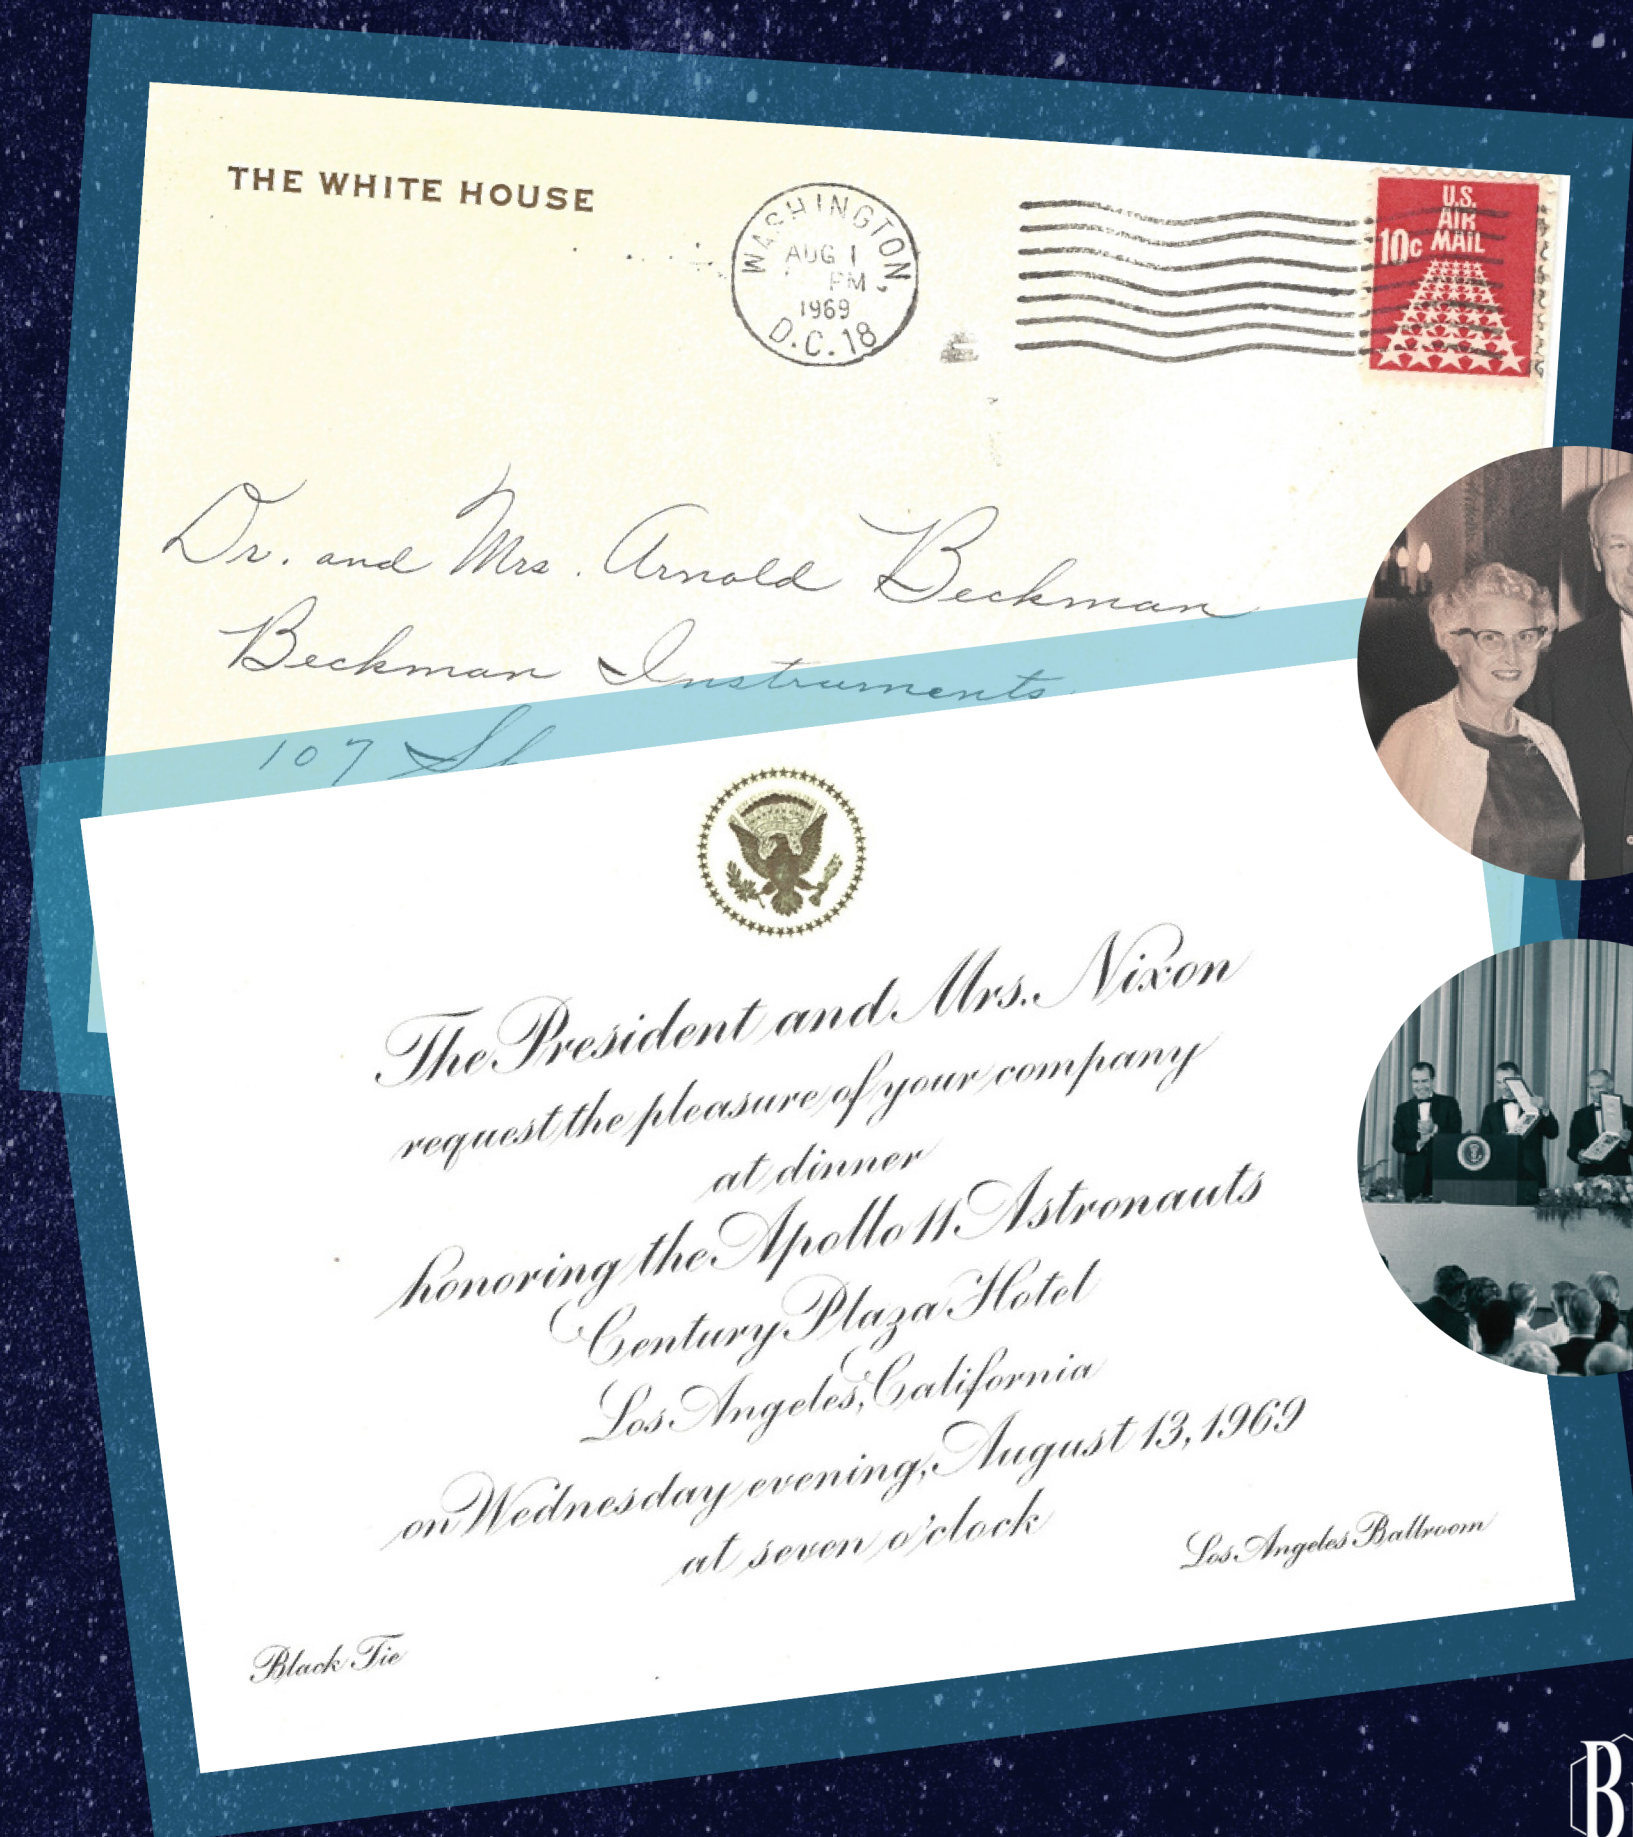 THE WHITE HOUSE
WASHINGTON,
AUG 1
PM
1969
D.C. 18
U.S.
AIR
MAIL
10c
Dr. and Mrs. Arnold Beckman
Beckman Instruments
107
The President and Mrs. Nixon
request the pleasure of your company
at dinner
honoring the Apollo 11 Astronauts
Century Plaza Hotel
Los Angeles, California
on Wednesday evening, August 13, 1969
at seven o'clock
Los Angeles Ballroom
Black Tie
B